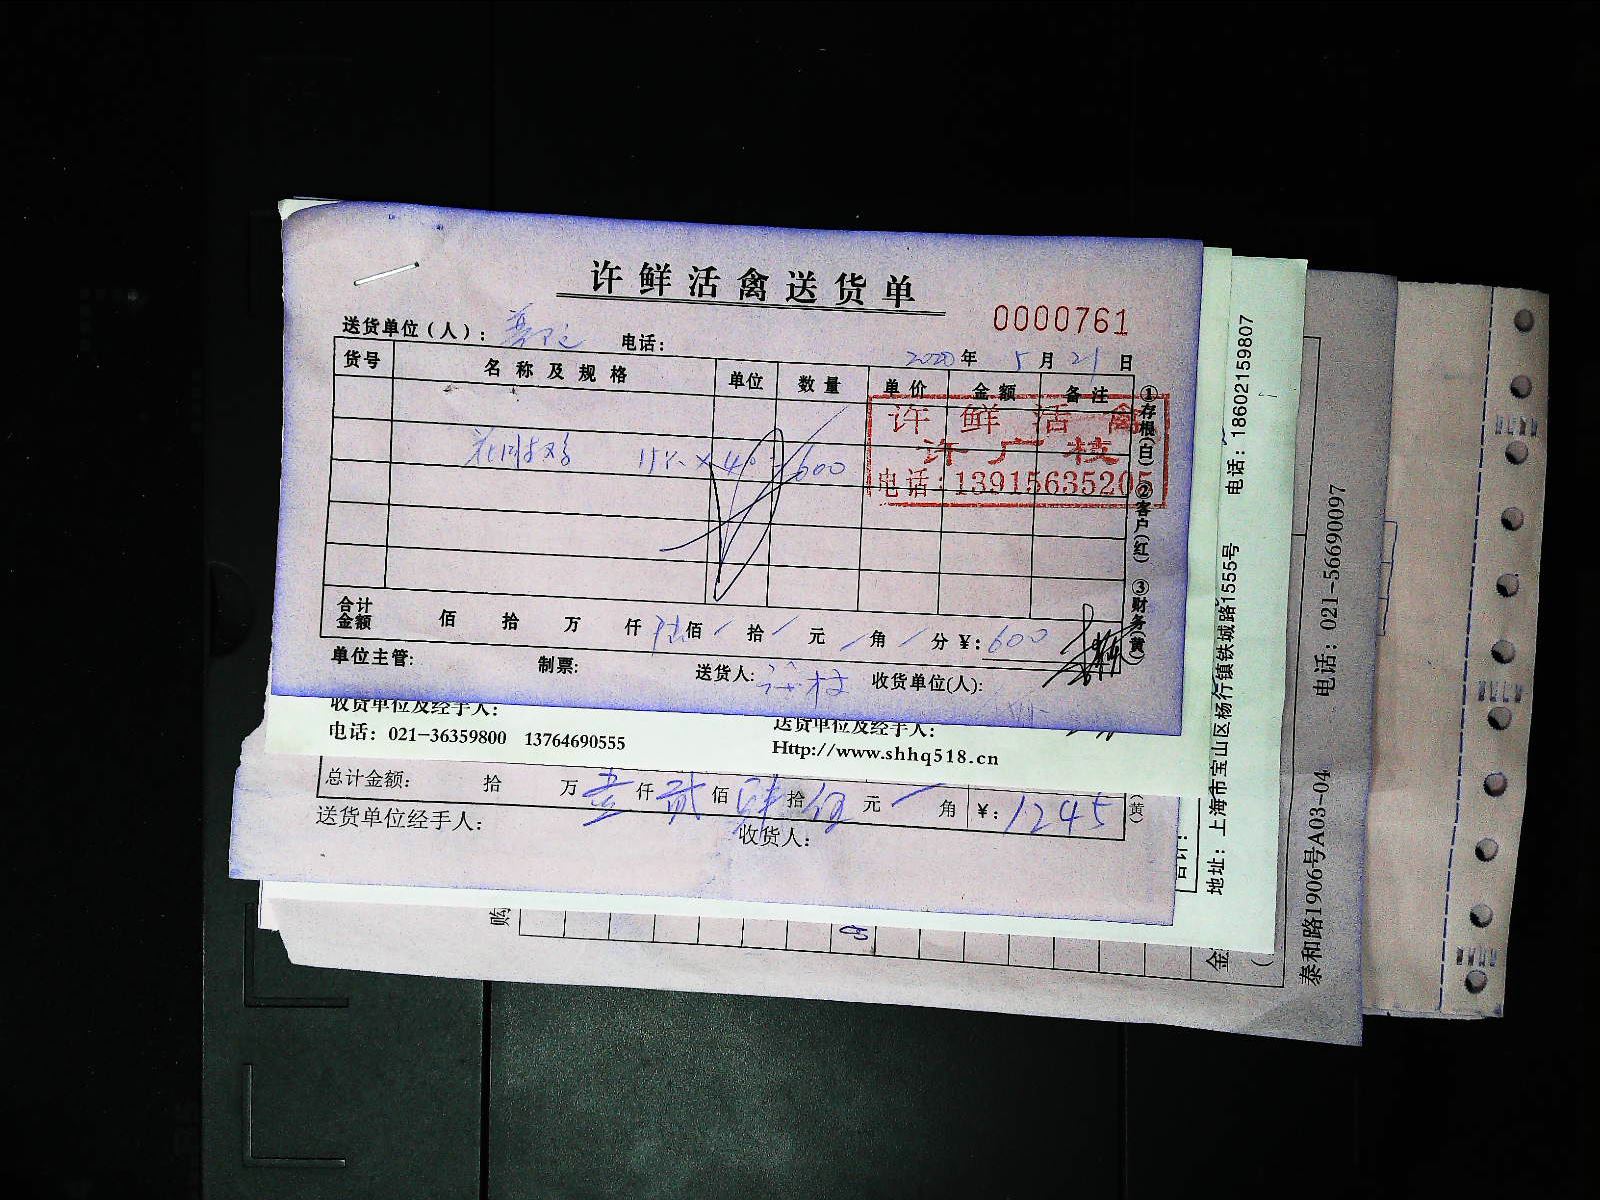 许鲜活禽送货单
0000761
送货单位(人):
电话:
2020年5月21日
货号 名称及规格 单位 数量 单价 金额 备注
许鲜活禽
许广枝
电话:13915635205
15 × 40 = 600
①存根(白) ②客户(红) ③财务(黄)
合计金额 佰 拾 万 仟 陆佰 / 拾 / 元 / 角 / 分 ¥: 600
单位主管: 制票: 送货人: 收货单位(人):
收货单位及经手人: 送货单位及经手人:
电话: 021-36359800 13764690555 Http://www.shhq518.cn
总计金额: 拾 万 壹仟 贰佰 肆拾 伍元 角 ¥: 1245
(黄)
送货单位经手人: 收货人:
合计:
购
金
地址: 上海市宝山区杨行镇铁城路1555号 电话: 18602159807
泰和路1906号A03-04 电话: 021-56690097